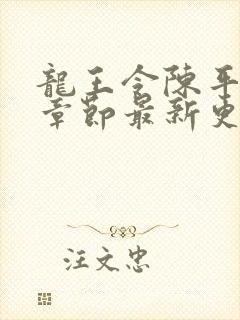 龍王令陳平
章節最新更
汪文忠